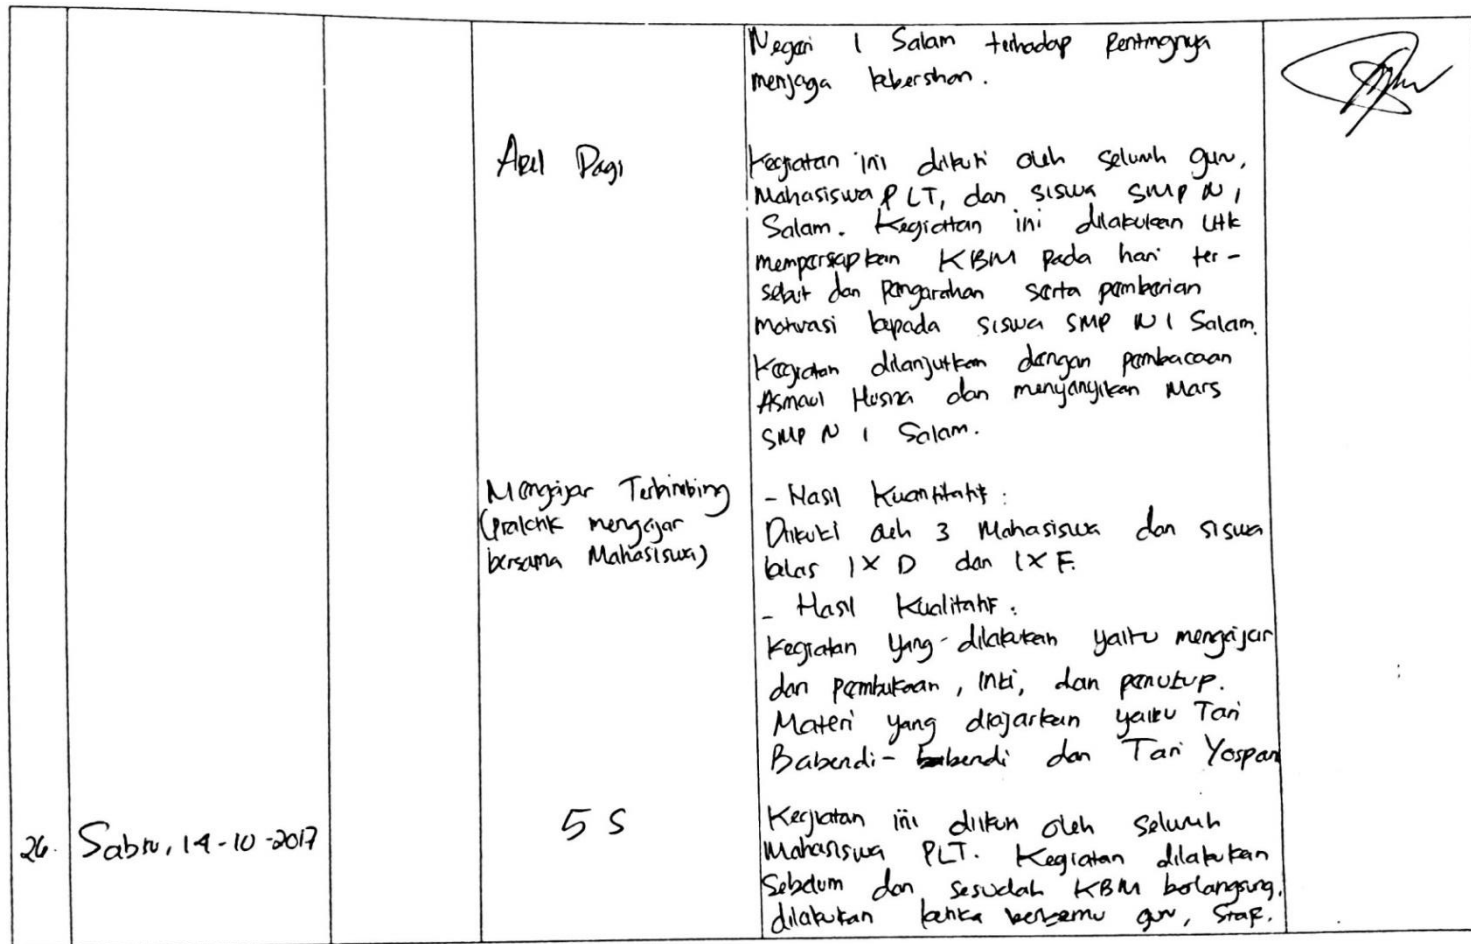 Negeri 1 Salam terhadap Pentingnya
menjaga kebersihan.
Apel Pagi
Kegiatan ini diikuti oleh seluruh guru,
Mahasiswa PLT, dan siswa SMP N 1
Salam. Kegiatan ini dilakukan utk
mempersiapkan KBM pada hari ter-
sebut dan pengarahan serta pemberian
motivasi kepada siswa SMP N 1 Salam.
Kegiatan dilanjutkan dengan pembacaan
Asmaul Husna dan menyanyikan Mars
SMP N 1 Salam.
Mengajar Terbimbing
(praktik mengajar
bersama Mahasiswa)
- Hasil Kuantitatif :
Diikuti oleh 3 Mahasiswa dan siswa
kelas IX D dan IX F.
- Hasil Kualitatif :
Kegiatan yang dilakukan yaitu mengajar
dan pembukaan, inti, dan penutup.
Materi yang diajarkan yaitu Tari
Babendi-bendi dan Tari Yospan
26. Sabtu, 14-10-2017
5 S
Kegiatan ini diikuti oleh seluruh
Mahasiswa PLT. Kegiatan dilakukan
Sebelum dan sesudah KBM berlangsung.
dilakukan ketika bertemu guru, staf.